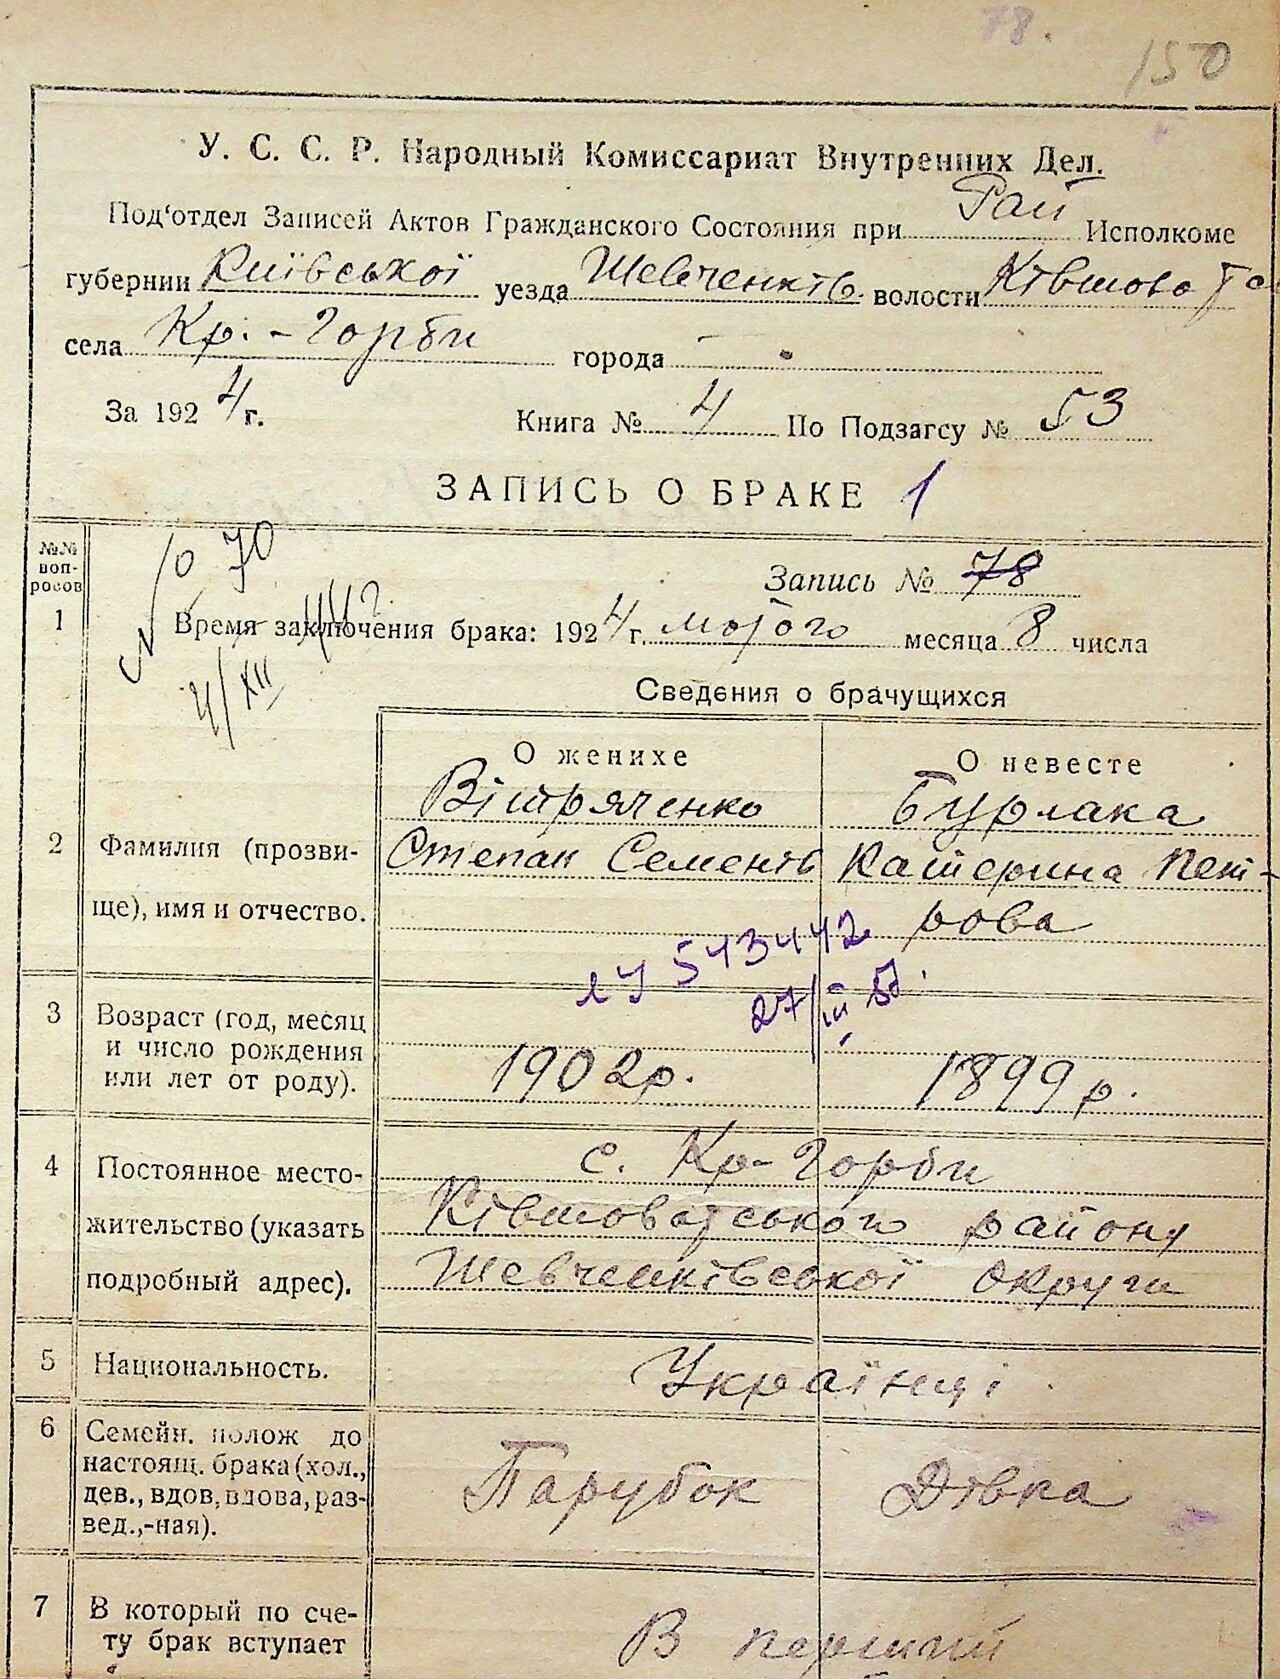 78.
150
У. С. С. Р. Народный Комиссариат Внутренних Дел.
Под'отдел Записей Актов Гражданского Состояния при Рай Исполкоме
губернии Київської уезда Шевченків. волости Ківшовата
села Кр.-Горби города -
За 1924 г. Книга № 4 По Подзагсу № 53
ЗАПИСЬ О БРАКЕ 1
№№ воп-росов
№ 70
Запись № 78
1 Время заключения брака: 1924 г. лютого месяца 8 числа
4/XII 44 г.
Сведения о брачущихся
О женихе О невесте
Вітряченко Бурлака
2 Фамилия (прозви- Степан Семенів Катерина Пет-
ще), имя и отчество. рова
ЛУ 543442
27/III 51.
3 Возраст (год, месяц
и число рождения
или лет от роду). 1902 р. 1899 р.
4 Постоянное место- с. Кр-Горби
жительство (указать Ківшоватського району
подробный адрес). Шевченківської округи
5 Национальность. Українці
6 Семейн. полож до
настоящ. брака (хол.,
дев., вдов, вдова, раз-
вед.,-ная). Парубок Дівка
7 В который по сче-
ту брак вступает В перший